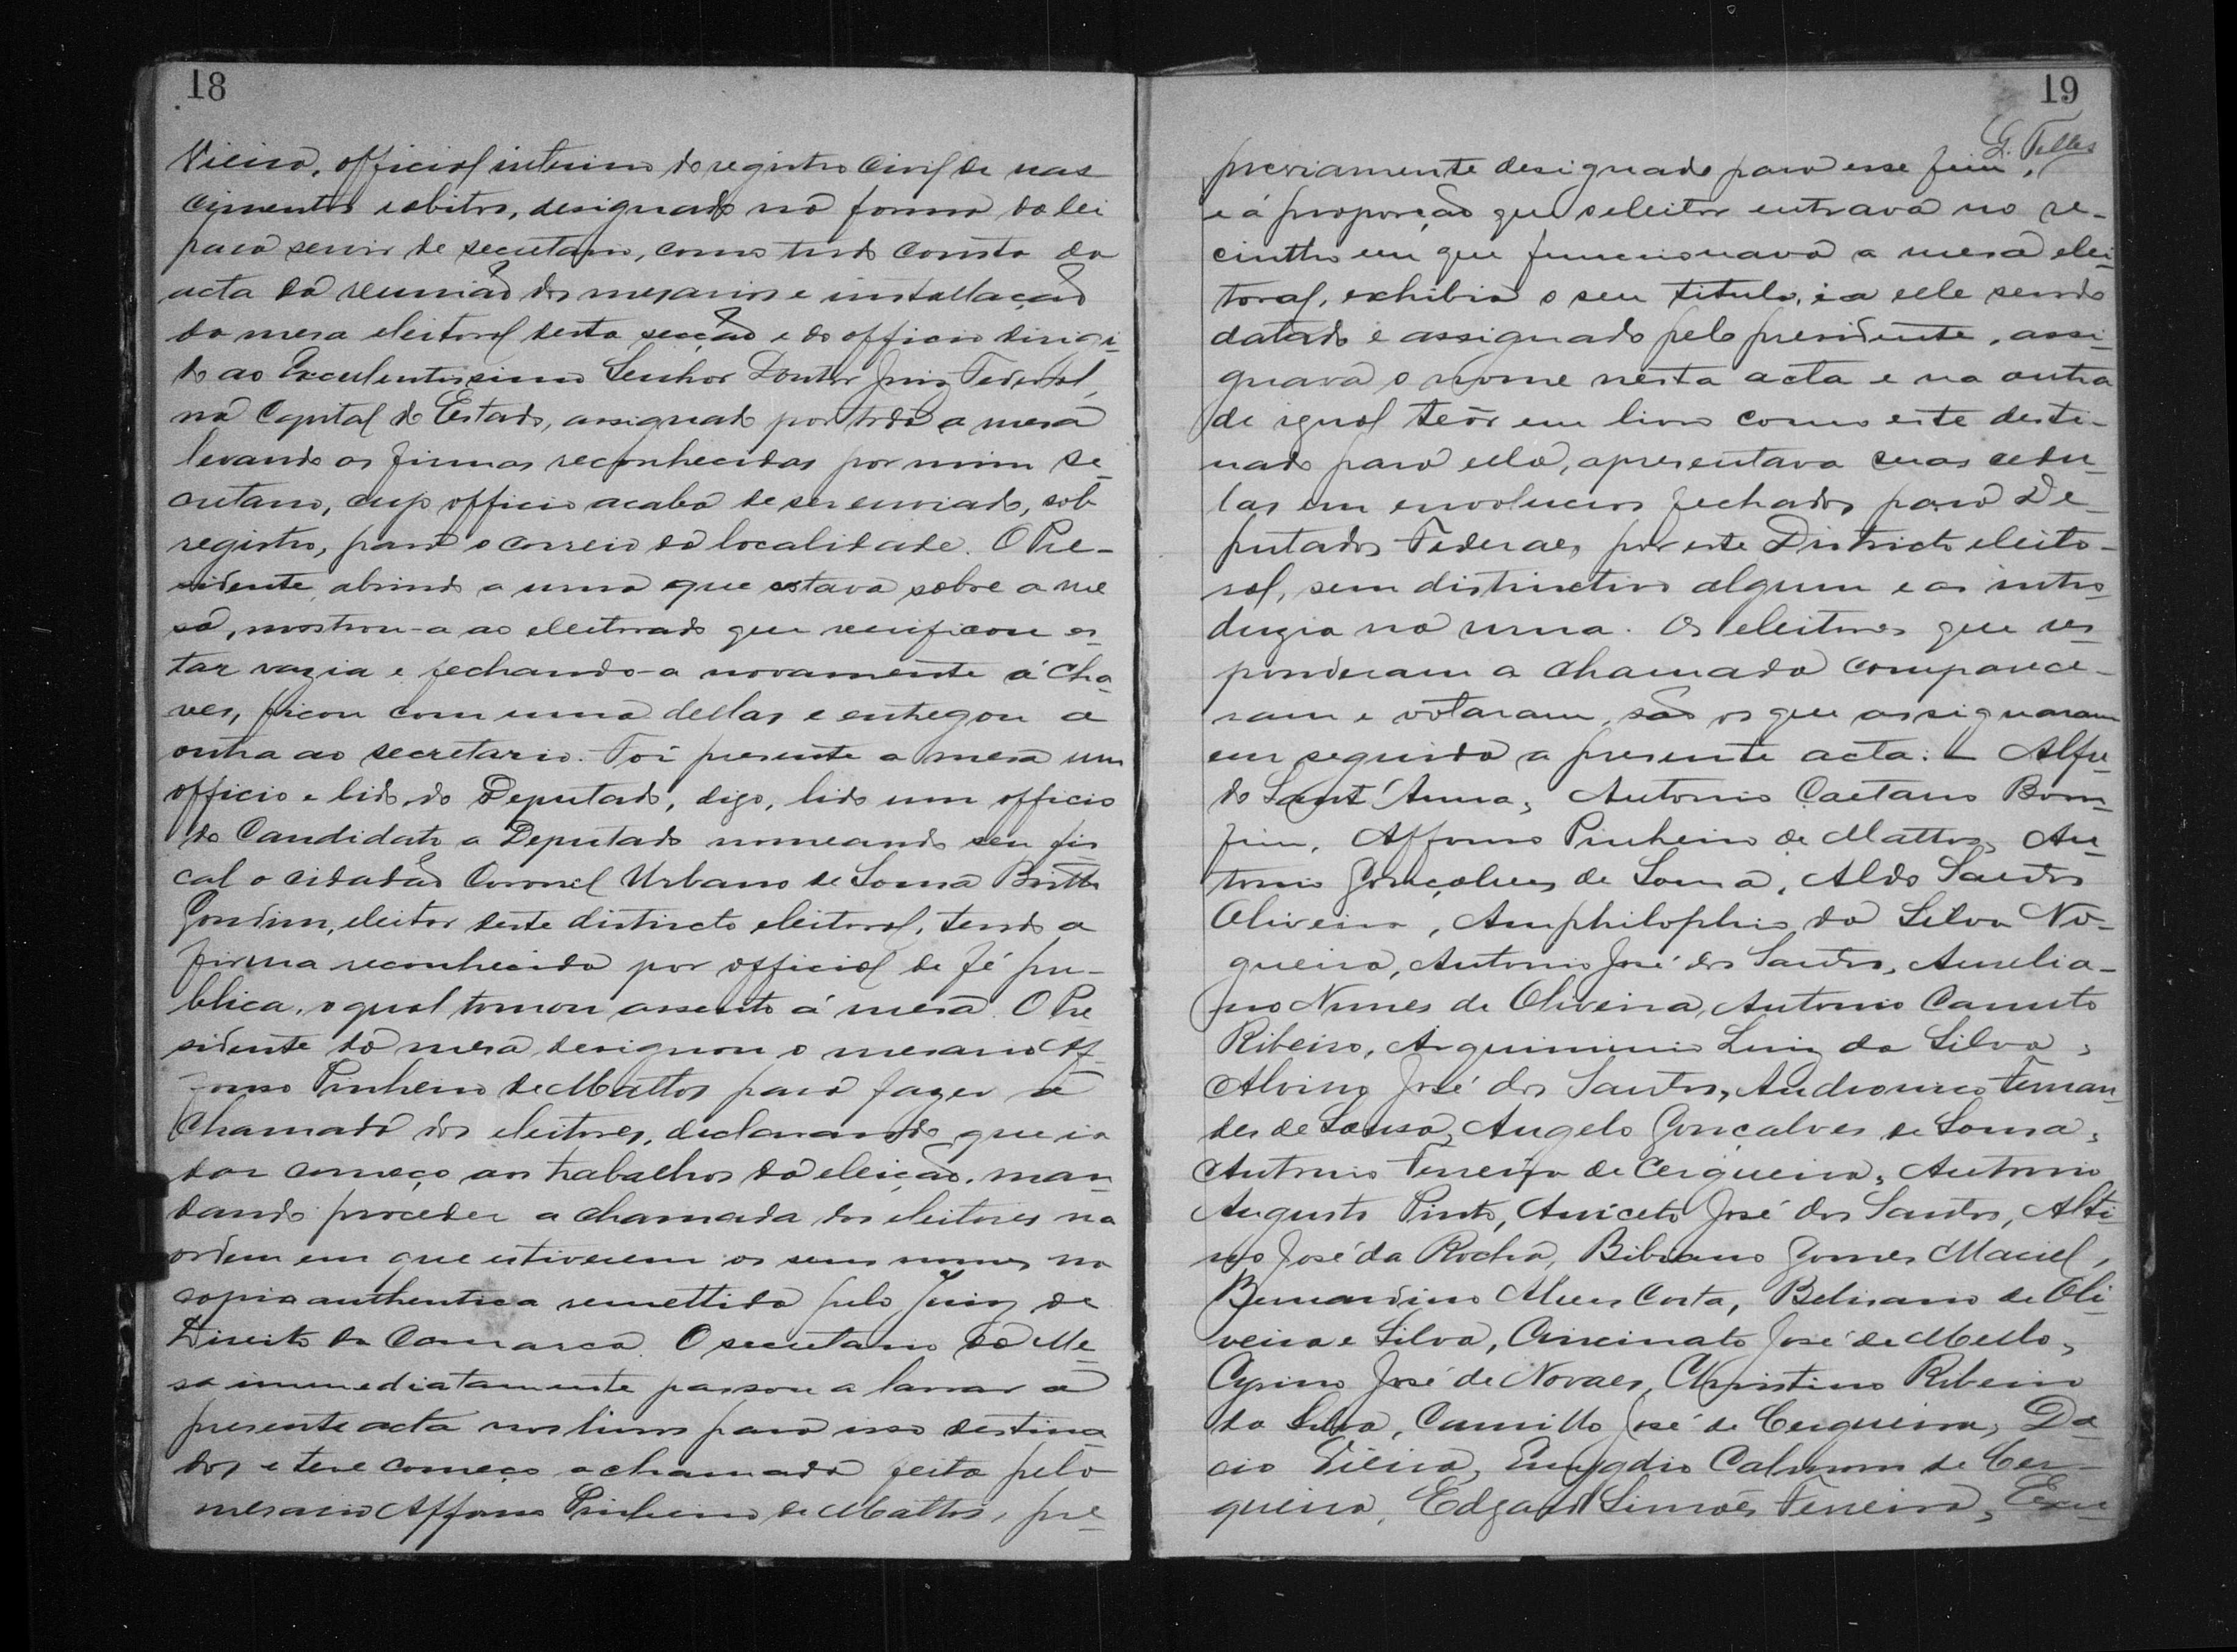 18
Vieira, official interino do registro civil de nas-
cimentos e obitos, designado na forma da lei
para servir de secretario, como tudo consta da
acta da reunião dos mesarios e installação
da mesa eleitoral desta secção e do officio dirigi-
do ao Excellentissimo Senhor Doutor Juiz Federal,
na Capital do Estado, assignado por toda a mesa
levando as firmas reconhecidas por mim se-
cretario, cujo officio acaba de ser enviado, sob
registro, para o correio da localidade. O Pre-
sidente, abrindo a urna que estava sobre a me
sa, mostrou-a ao eleitorado que verificou es-
tar vazia e fechando-a novamente á cha-
ves, ficou com uma dellas e entregou a
outra ao secretario. Foi presente a mesa um
officio e lido do Deputado, digo, lido um officio
do Candidato a Deputado nomeando seu fis-
cal o cidadão Coronel Urbano de Sousa Britto
Gondim, eleitor deste districto eleitoral, tendo a
firma reconhecida por official de fé pu-
blica, o qual tomou assento á mesa. O Pre
sidente da mesa designou o mesario Af-
fonso Pinheiro de Mattos para fazer a
chamada dos eleitores, declarando que ia
dar começo aos trabalhos da eleição, man-
dando proceder a chamada dos eleitores na
ordem em que estiverem os seus nomes na
copia authentica remettida pelo Juiz de
Direito da Comarca. O secretario da Me-
sa immediatamente passou a lavrar a
presente acta nos livros para isso destina-
dos e teve começo a chamada feita pelo
mesario Affonso Pinheiro de Mattos, pre-
19
G. Telles
previamente designado para esse fim,
e á proporção que o eleitor entrava no re-
cintho em que funccionava a mesa elei-
toral, exhibia o seu titulo, e a elle sendo
datado e assignado pelo presidente, assi-
gnava o nome nesta acta e na outra
de igual teôr em livro como este desti-
nado para ella, apresentava suas cedu-
las em envolucros fechados para De-
putados Federaes, por este Districto eleito-
ral, sem distinctivo algum e as intro-
duzia na urna. Os eleitores que res-
ponderam a chamada comparece-
ram e votaram, são os que assignaram
em seguida a presente acta: - Alfre-
do Sant'Anna, Antonio Caetano Bom-
fim, Affonso Pinheiro de Mattos, An-
tonio Gonçalves de Sousa, Aldo Santos
Oliveira, Amphilophio da Silva No-
gueira, Antonio José dos Santos, Aurelia-
no Nunes de Oliveira, Antonio Canuto
Ribeiro, Arguimino Luiz da Silva,
Alvino José dos Santos, Andronico Fernan-
des de Sousa, Angelo Gonçalves de Sousa,
Antonio Ferreira de Cerqueira, Antonio
Augusto Pinto, Aniceto José dos Santos, Alti-
no José da Rocha, Bibiano Gomes Maciel,
Bernardino Alves Costa, Belisario de Oli-
veira e Silva, Cincinato José de Mello,
Cyrino José de Novaes, Christino Ribeiro
da Silva, Camillo José de Cerqueira, Da-
cio Vieira, Emygdio Calmom de Cer-
queira, Edgard Simões Ferreira,